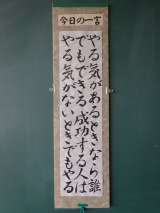 今日の一言
やる気があるときなら誰
でもできる 成功する人は
やる気がないときでもやる